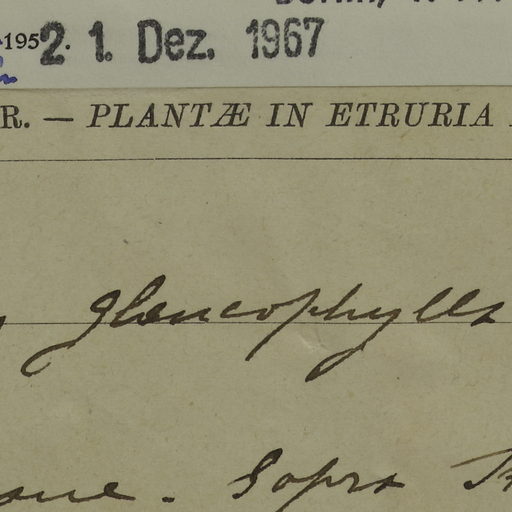 195 21. Dez. 1967
R. — PLANTÆ IN ETRURIA
glaucophylla
Sopra